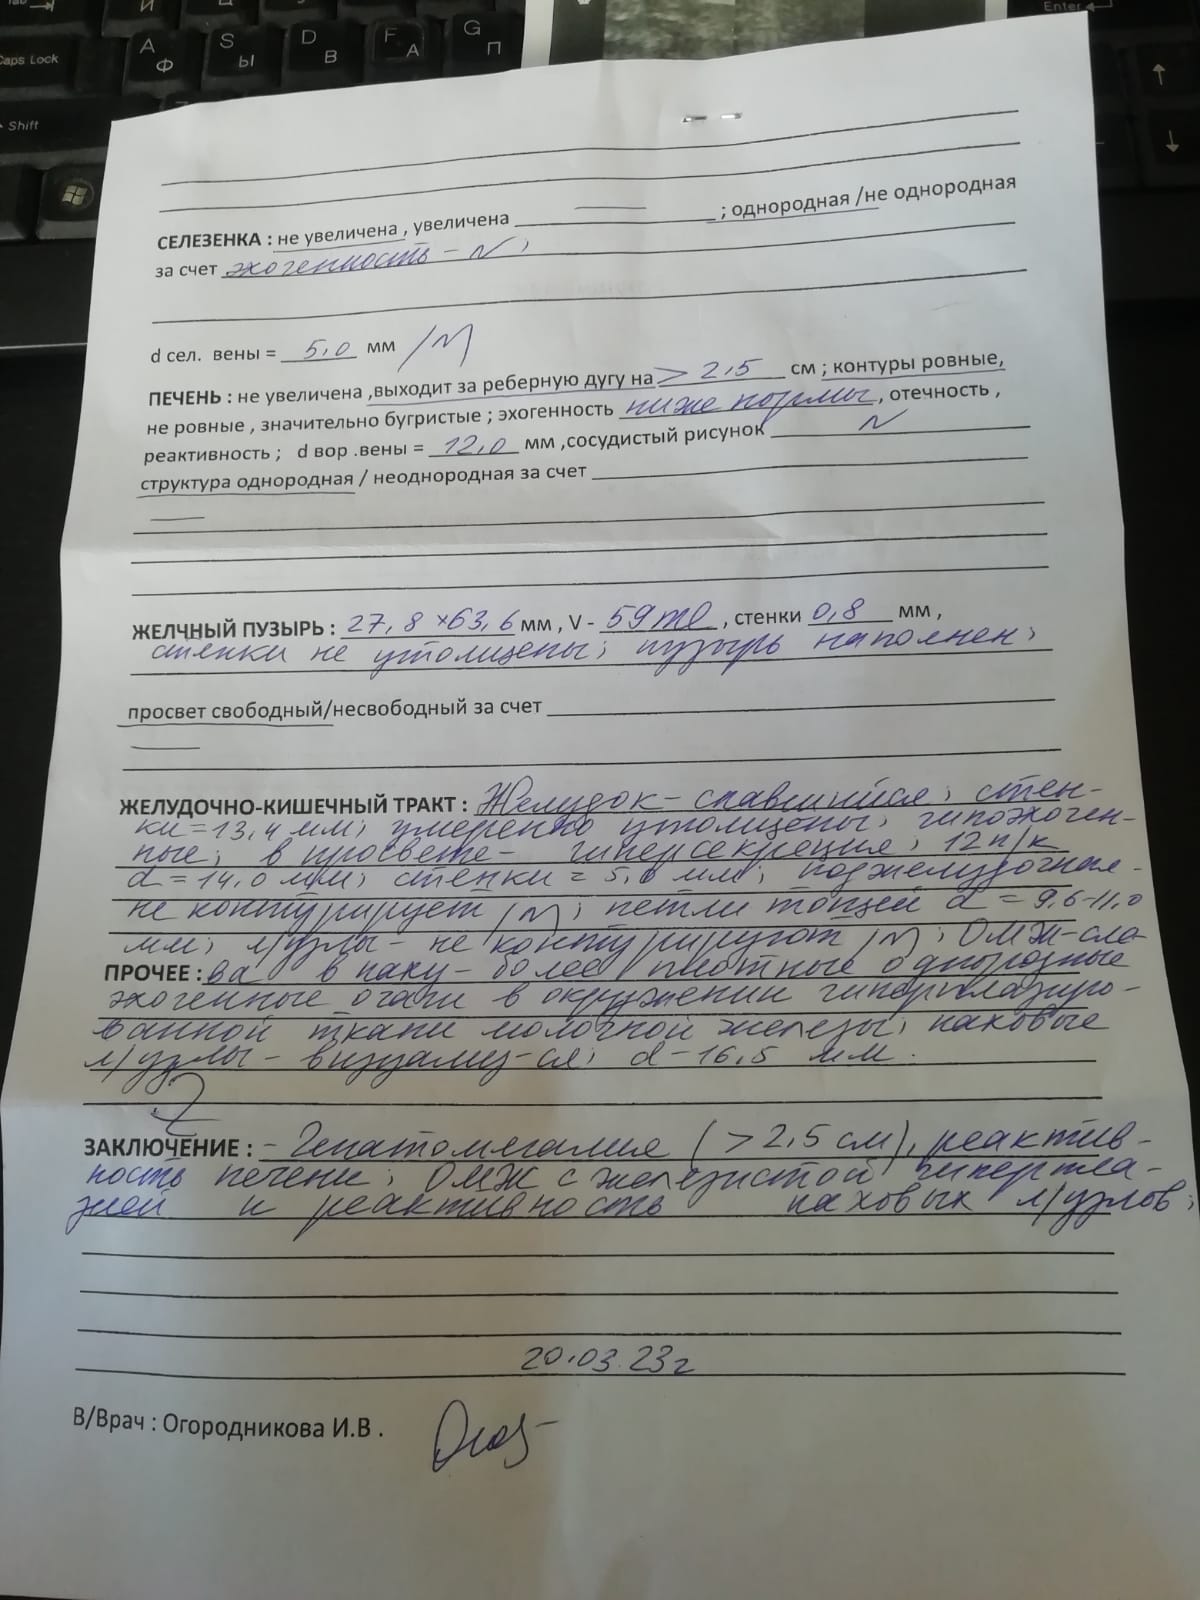 Tab
Й
Caps Lock
A Ф
S Ы
D В
F А
G П
Enter
Shift
СЕЛЕЗЕНКА : не увеличена , увеличена — ; однородная /не однородная
за счет эхогенность - N ;
d сел. вены = 5,0 мм /N
ПЕЧЕНЬ : не увеличена ,выходит за реберную дугу на > 2,5 см ; контуры ровные,
не ровные , значительно бугристые ; эхогенность ниже нормы , отечность ,
реактивность ; d вор .вены = 12,0 мм ,сосудистый рисунок N
структура однородная / неоднородная за счет
—
ЖЕЛЧНЫЙ ПУЗЫРЬ : 27,8 ×63,6 мм , V - 59 ml , стенки 0,8 мм ,
стенки не утолщены; пузырь наполнен;
просвет свободный/несвободный за счет
—
ЖЕЛУДОЧНО-КИШЕЧНЫЙ ТРАКТ : Желудок - спавшийся; стен-
ки = 13,4 мм; умеренно утолщены; гипоэхоген-
ные; в просвете - гиперсекреция; 12 п/к
d = 14,0 мм; стенки = 5,0 мм; поджелудочная -
не контурирует /N; петли тощей d = 9,6-11,0
мм; л/узлы - не контурируют /N; ОМЖ-сле-
ПРОЧЕЕ : ва в паху - более плотные однородные
эхогенные очаги в окружении гиперплазиро-
ванной ткани молочной железы; паховые
л/узлы - визуализ-ся; d - 16,5 мм.
ЗАКЛЮЧЕНИЕ : - Гепатомегалия ( > 2,5 см), реактив-
ность печени; ОМЖ с железистой гиперпла-
зией и реактивность паховых л/узлов;
20.03.23г
В/Врач : Огородникова И.В .